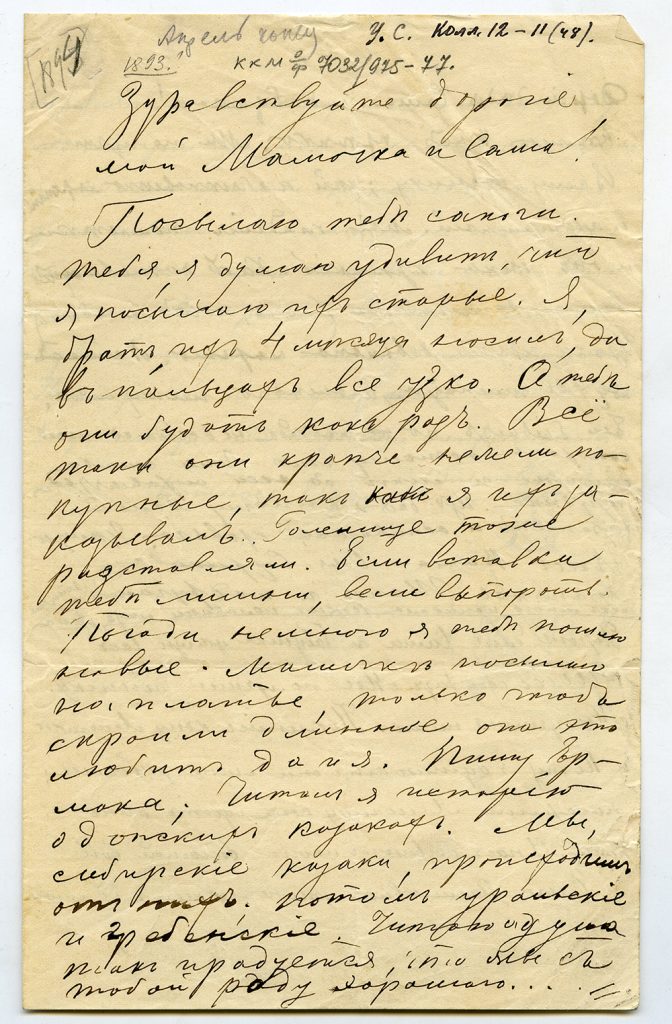 1894
Апрель конец
У. С. Колл. 12 – 11 (48).
1893.
ККМ ОФ 7032/975-77.
Здравствуйте дорогіе
мой Мамочка и Саша!
Посылаю тебѣ сапоги.
Тебя, я думаю удивитъ, что
я посылаю ихъ старые. Я,
братъ, ихъ 4 мѣсяца носилъ, да
въ пальцахъ все узко. А тебѣ
они будутъ какъ разъ. Всё
таки они крепче нежели по-
купные, такъ какъ я ихъ за-
казывалъ. Голенище тоже
разставляли. Если вставки
тебѣ лишни, вели выпороть.
Погоди немного я тебѣ пошлю
новые. Мамочкѣ посылаю
на платье, только чтобъ
скроили длинное, она это
любитъ да и я. Пишу Ер-
мака. Читалъ я исторію
о донскихъ казакахъ. Мы,
сибирскіе казаки, происходимъ
отъ нихъ, потомъ уральскіе
и гребенскіе. Читаю и душа
такъ и радуется, что мы съ
тобой роду хорошаго....